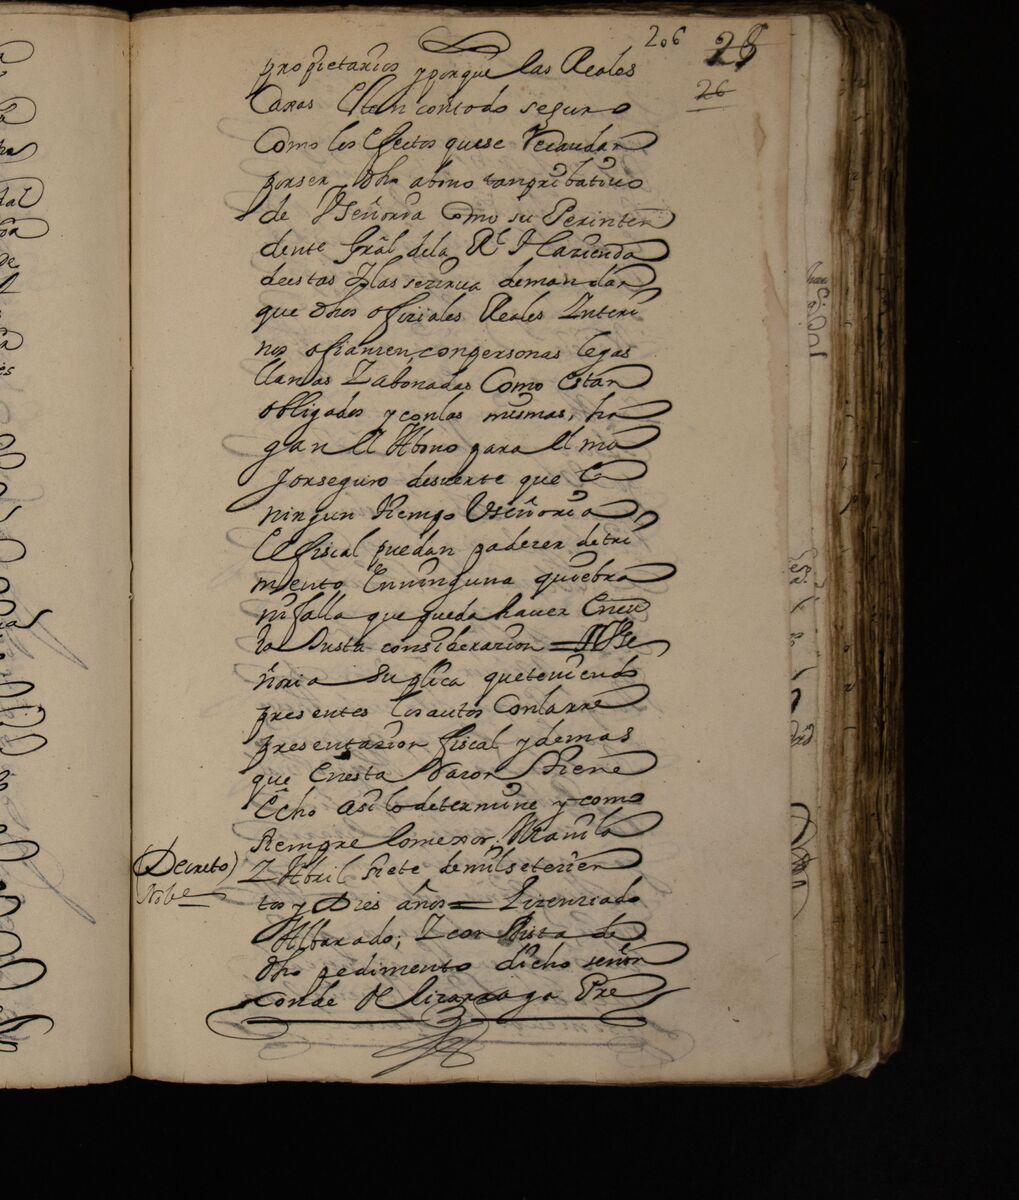 206 28
26
propietarios y porque las Reales
Caxas Estan contodo seguro
Como los Efectos quese Recaudan
porser dho abono tanpribatiuo
de VSeñoria Como su Perinten
dente Gral dela Rl Hazienda
deestas Yslas seziruia demandar
que dhos ofiziales Reales Interi
nos afiansen conpersonas legas
llanas Zabonadas Como Estan
obligados y conlas mismas, ha
gan El Abono para El ma
Jorseguro desuerte que En
ningun tiempo Vseñoria
El fiscal puedan padezer detri
miento Enninguna quiebra
nifalla que pueda hauer Encu
ia Justa considerazion = A VSe
ñoria Suplica queteniendo
presentes los autos Conlarre
presentazion fiscal ydemas
que Enesta Razon Atiene
Echo asi lo determine y como
siempre lomexor; Manila
Z Abril siete demilsetezien
tos y Dies años = Lizenziado
Albarado; Zcon Vista de
dho pedimento dicho señor
Conde de lizarraga Pre
(Decreto)